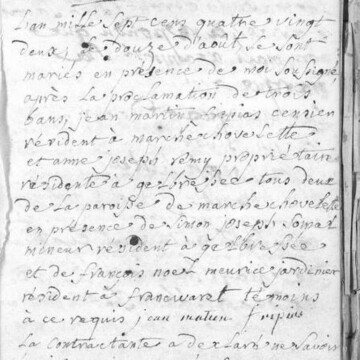 L'an mille sept cens quatre vingt
deux le douze d'août se sont
mariés en presence de moi soussigné
après la proclamation de trois
bans jean martin fripias censier
résident à marchexhovelette
et anne joseph remy propriétaire
résidente à gelbressée tous deux
de la paroisse de marchexhovelette
en présence de simon joseph
mineur résident à gelbressée
et de françois noel meurice jardinier
résident à francwaret témoins
à ce requis jean martin fripias
la contractante a déclaré ne savoir